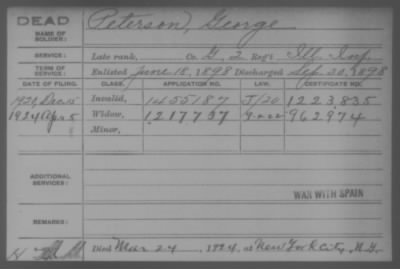 DEAD
NAME OF SOLDIER: Peterson, George
SERVICE: Late rank, Co. G, 2 Reg't Ill. Inf.
TERM OF SERVICE: Enlisted June 18, 1898 Discharged Sep. 30, 1898
DATE OF FILING. CLASS. APPLICATION NO. LAW. CERTIFICATE NO.
1920, Dec 15 Invalid, 1455187 J/20 1223,835
1924 Apr 5 Widow, 1217737 962974
Minor,
ADDITIONAL SERVICES:
WAR WITH SPAIN
REMARKS:
Died Mar 24, 1924, at New York City, N.Y.